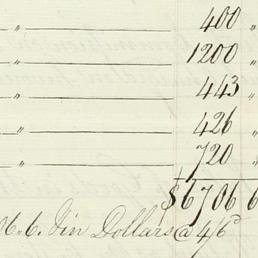 " 400 "
" 1200 "
" 443 "
" 426 "
" 720 "
$6706 6
in Dollars @ 4/6